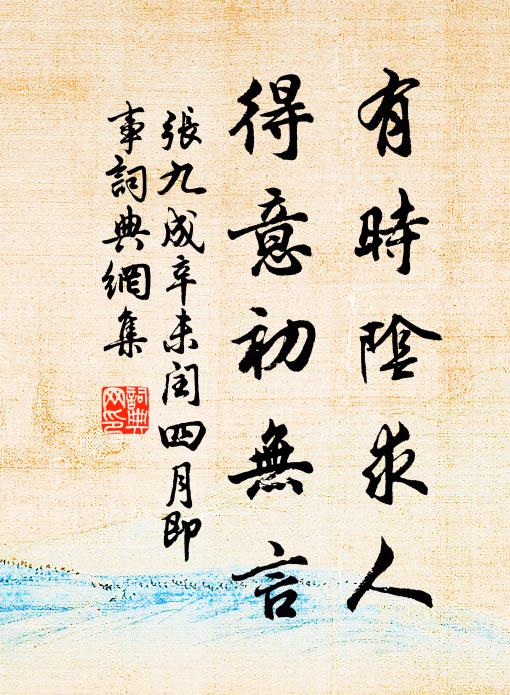 有時陰求人
得意初無言
張九成辛未閏四月即
事詞典網集
詞典
网印